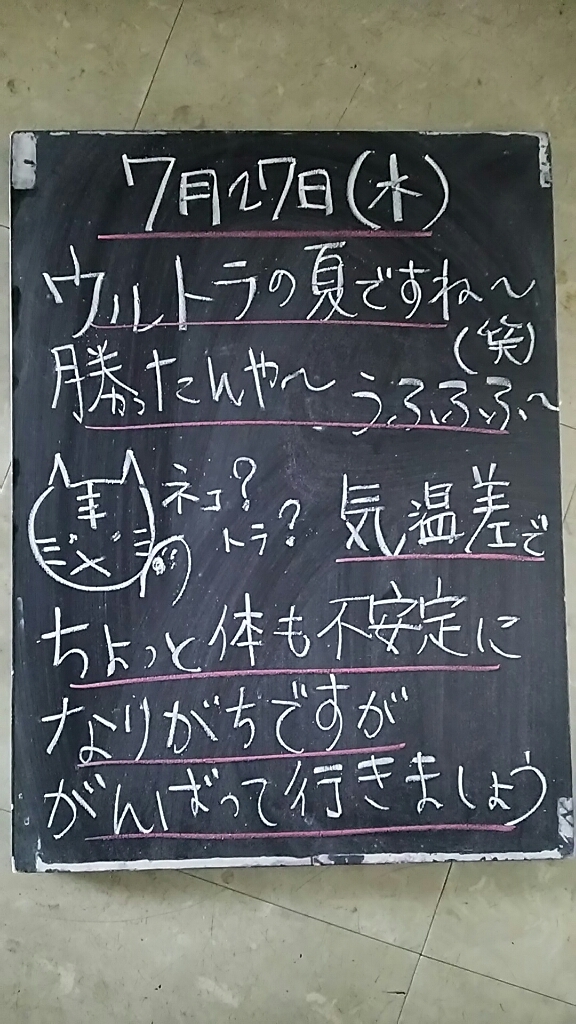 7月27日(木)
ウルトラの夏ですね〜
(笑)
勝ったんや〜 うふふふ〜
ネコ?
トラ?
気温差で
ちょっと体も不安定に
なりがちですが
がんばって行きましょう